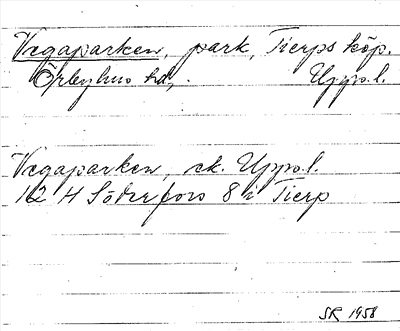 Vegaparken, park, Tierps köp.
Örbyhus hd, Upps.l.
Vegaparken, ek. Upps.l.
12 H Söderfors 8 i Tierp
SR 1958